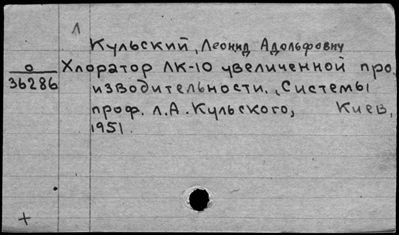 Л
Кульский, Леонид Адольфович
о Хлоратор ЛК-10 увеличенной про-
36286 изводительности. Системы
проф. Л.А. Кульского, Киев,
1951.
+